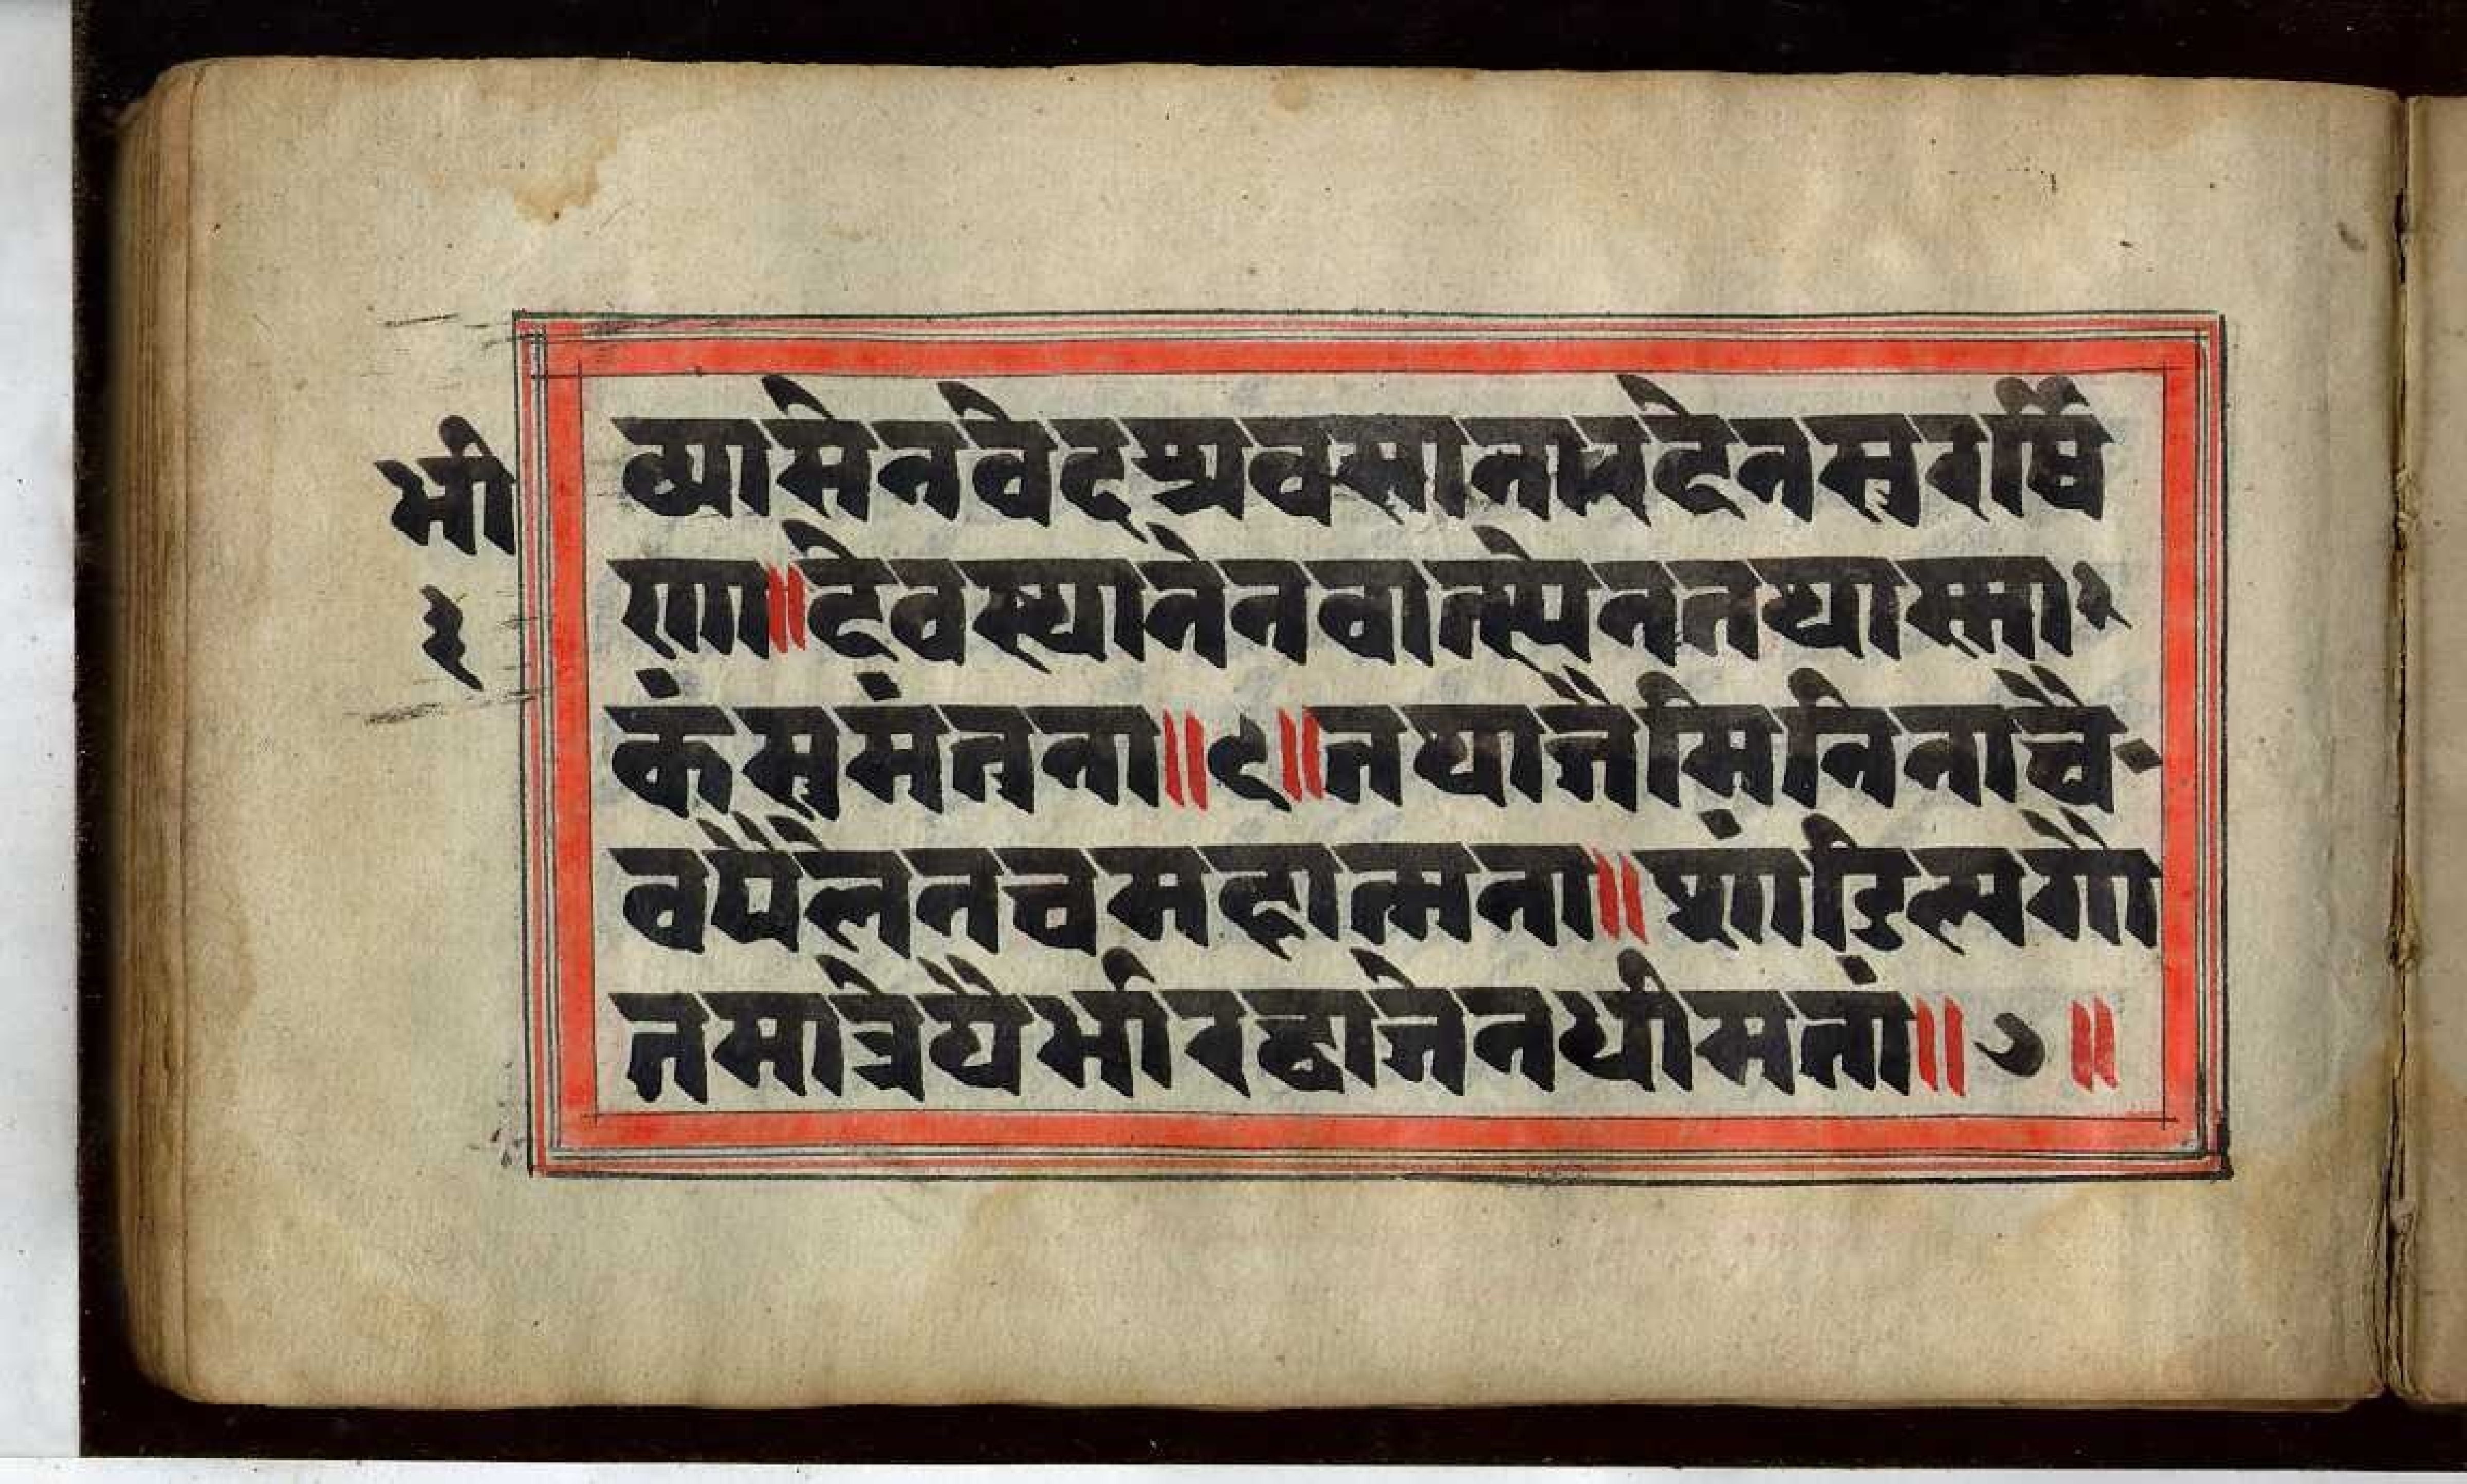 भी
३
व्यासेनवेदश्रवसानारदेनसुरर्षि
णा॥देवस्थानेनवात्स्येनतथास्मा २
कंसुमंतुना॥६॥तथाजैमिनिनाचै-
वपैलेनचमहात्मना॥शांडिल्यगौ
तमात्रेयैर्भारद्वाजेनधीमतां॥७॥